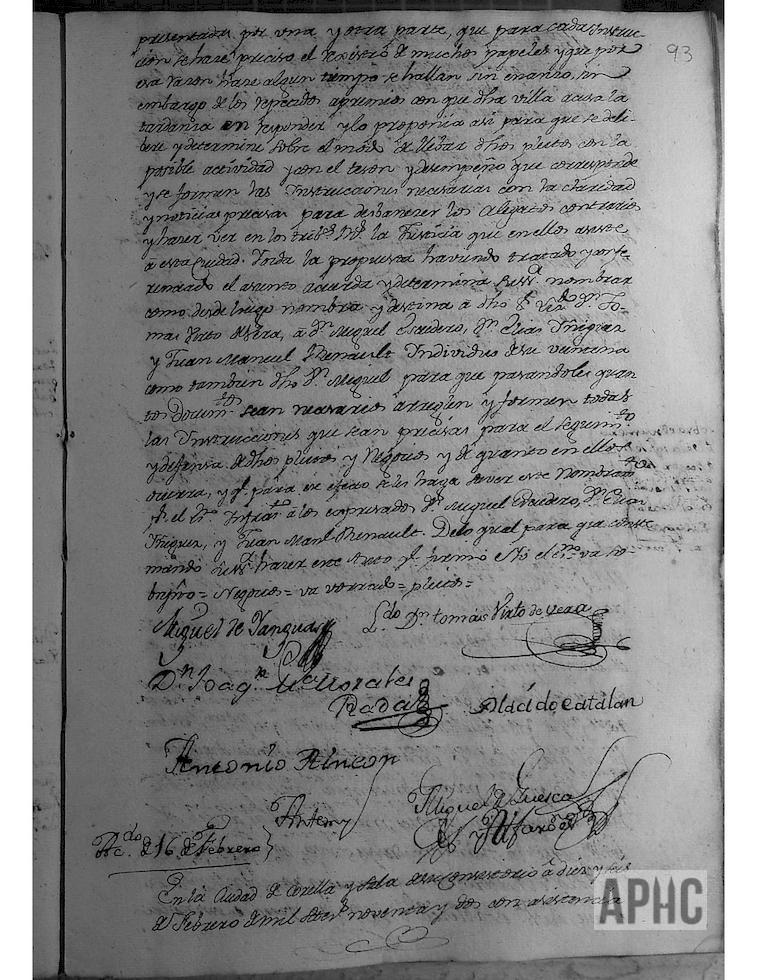 presentadas por una y otra parte, que para cada Instruc-
93
cion se hace preciso el rexistro de muchos papeles y que por
esa razon hace algun tiempo se hallan sin evanzo, sin
embargo de los repetidos apremios con que dha villa acusa la
tardanza en responder y lo proponia asi para que se deli-
bere y determine sobre el modo de llebar dhos pleitos con la
posible actividad y con el teson y desempeño que corresponde
y se formen las Instrucciones necesarias con la claridad
y noticias precisas para desbanecer los alegatos contrarios
y hacer ver en los trib.s la Justicia que en ellos asiste
a esta Ciudad. Y oida la propuesta haviendo tratado y confe-
renciado el asunto acuerda y determina nombrar
como desde luego nombra y destina a dho Dn To-
mas Virto de Vera, a Dn Miguel Escudero, Dn Elias Iñiguez
y Juan Manuel Renault Individuo de su veintena
como tambien dho Dn Miguel para que pasandoles quan
tos Docum.tos sean necesarios arreglen y formen todas
las Instrucciones que sean precisas para el seguim.to
y defensa de dhos pleitos y Negocios y de quanto en ellos
ocurra, y q.e para ese efecto se les haga saver este Nombram.to
p.r el a los expresados Dn Miguel Escudero, Dn Elias
Iñiguez, y Juan Man.l Renault. De lo qual para que conste
mando hacer este Auto q.e firmó Yo el ess.no va so-
brepto = Negocios = va borrado = pleitos =
Miguel de Yanguas
L.do Dn tomas Virto de vera
Dn Joaq.n M.a Morales
Rada
Placido Catalan
Antonio Rincon
Antemy
Miguel de Luesca
y Alfaro
Ac.do de 16 de Febrero
En la Ciudad de Corella y Sala de su Consistorio a diez y seis
de Febrero de mil setec.s noventa y dos con asistencia
APHC